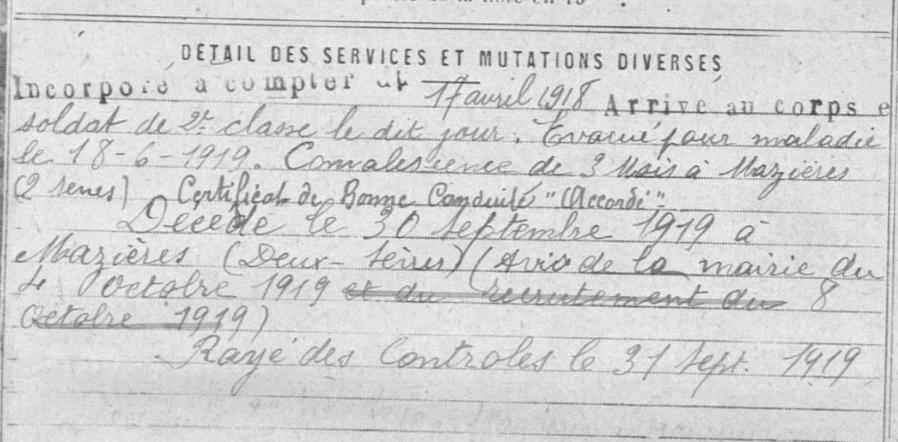 DETAIL DES SERVICES ET MUTATIONS DIVERSES
Incorporé à compter du 17 avril 1918 Arrivé au corps e
soldat de 2e classe le dit jour. Évacué pour maladie
le 18-6-1919. Convalescence de 3 Mois à Mazières
(2 sèvres) Certificat de Bonne Conduite "Accordé".
Décédé le 30 septembre 1919 à
Mazières (Deux-Sèvres) (Avis de la mairie du
4 octobre 1919 et du recrutement du 8
Octobre 1919)
Rayé des Controles le 31 Sept. 1919